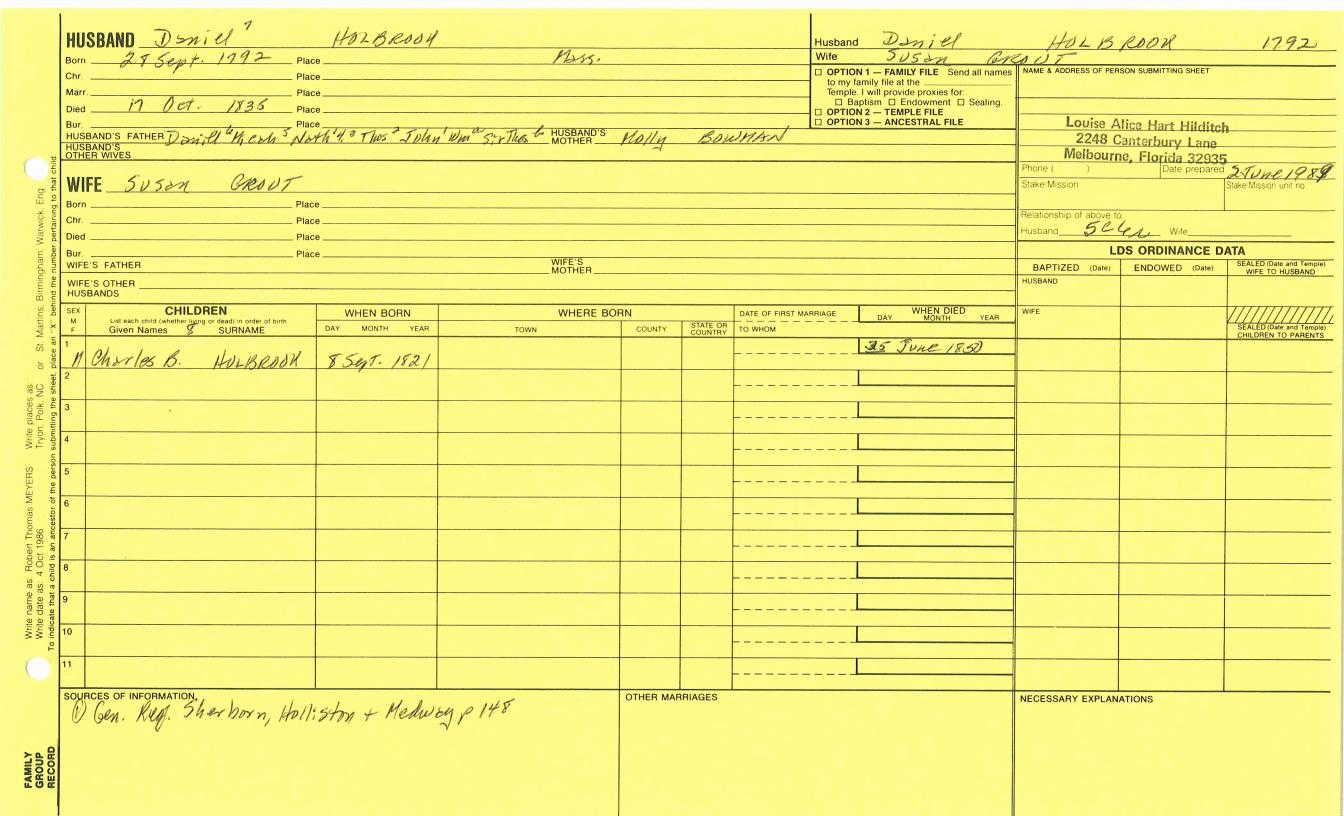 HUSBAND Daniel 7 HOLBROOK
Born 28 Sept. 1792 Place Mass.
Chr. Place
Marr. Place
Died 17 Oct. 1836 Place
Bur. Place
HUSBAND'S FATHER Daniel 6 Micah 5 Nath'l 4,3 Thos 2 John 1 Wm a Sir Thos b HUSBAND'S MOTHER Molly BOWMAN
HUSBAND'S OTHER WIVES
WIFE Susan GROUT
Born Place
Chr. Place
Died Place
Bur. Place
WIFE'S FATHER WIFE'S MOTHER
WIFE'S OTHER HUSBANDS
Husband Daniel HOLBROOK 1792
Wife Susan GROUT
☐ OPTION 1 — FAMILY FILE Send all names
to my family file at the
Temple. I will provide proxies for:
☐ Baptism ☐ Endowment ☐ Sealing.
☐ OPTION 2 — TEMPLE FILE
☐ OPTION 3 — ANCESTRAL FILE
NAME & ADDRESS OF PERSON SUBMITTING SHEET
Louise Alice Hart Hilditch
2248 Canterbury Lane
Melbourne, Florida 32935
Phone ( ) Date prepared 2 June 1989
Stake Mission Stake Mission unit no.
Relationship of above to:
Husband 5C4R Wife
LDS ORDINANCE DATA
BAPTIZED (Date) ENDOWED (Date) SEALED (Date and Temple) WIFE TO HUSBAND
HUSBAND
WIFE
SEALED (Date and Temple) CHILDREN TO PARENTS
SEX M F
CHILDREN
List each child (whether living or dead) in order of birth
Given Names 8 SURNAME
WHEN BORN
DAY MONTH YEAR
WHERE BORN
TOWN COUNTY STATE OR COUNTRY
DATE OF FIRST MARRIAGE
TO WHOM
WHEN DIED
DAY MONTH YEAR
1 M Charles B. HOLBROOK 8 Sept. 1821 25 June 1850
2
3
4
5
6
7
8
9
10
11
SOURCES OF INFORMATION
① Gen. Reg. Sherborn, Holliston + Medway p 148
OTHER MARRIAGES
NECESSARY EXPLANATIONS
Write name as: Robert Thomas MEYERS Write places as: Tryon, Polk, NC or St. Martins, Birmingham, Warwick, Eng.
Write date as: 4 Oct 1986
To indicate that a child is an ancestor of the person submitting the sheet, place an "X" behind the number pertaining to that child.
FAMILY GROUP RECORD